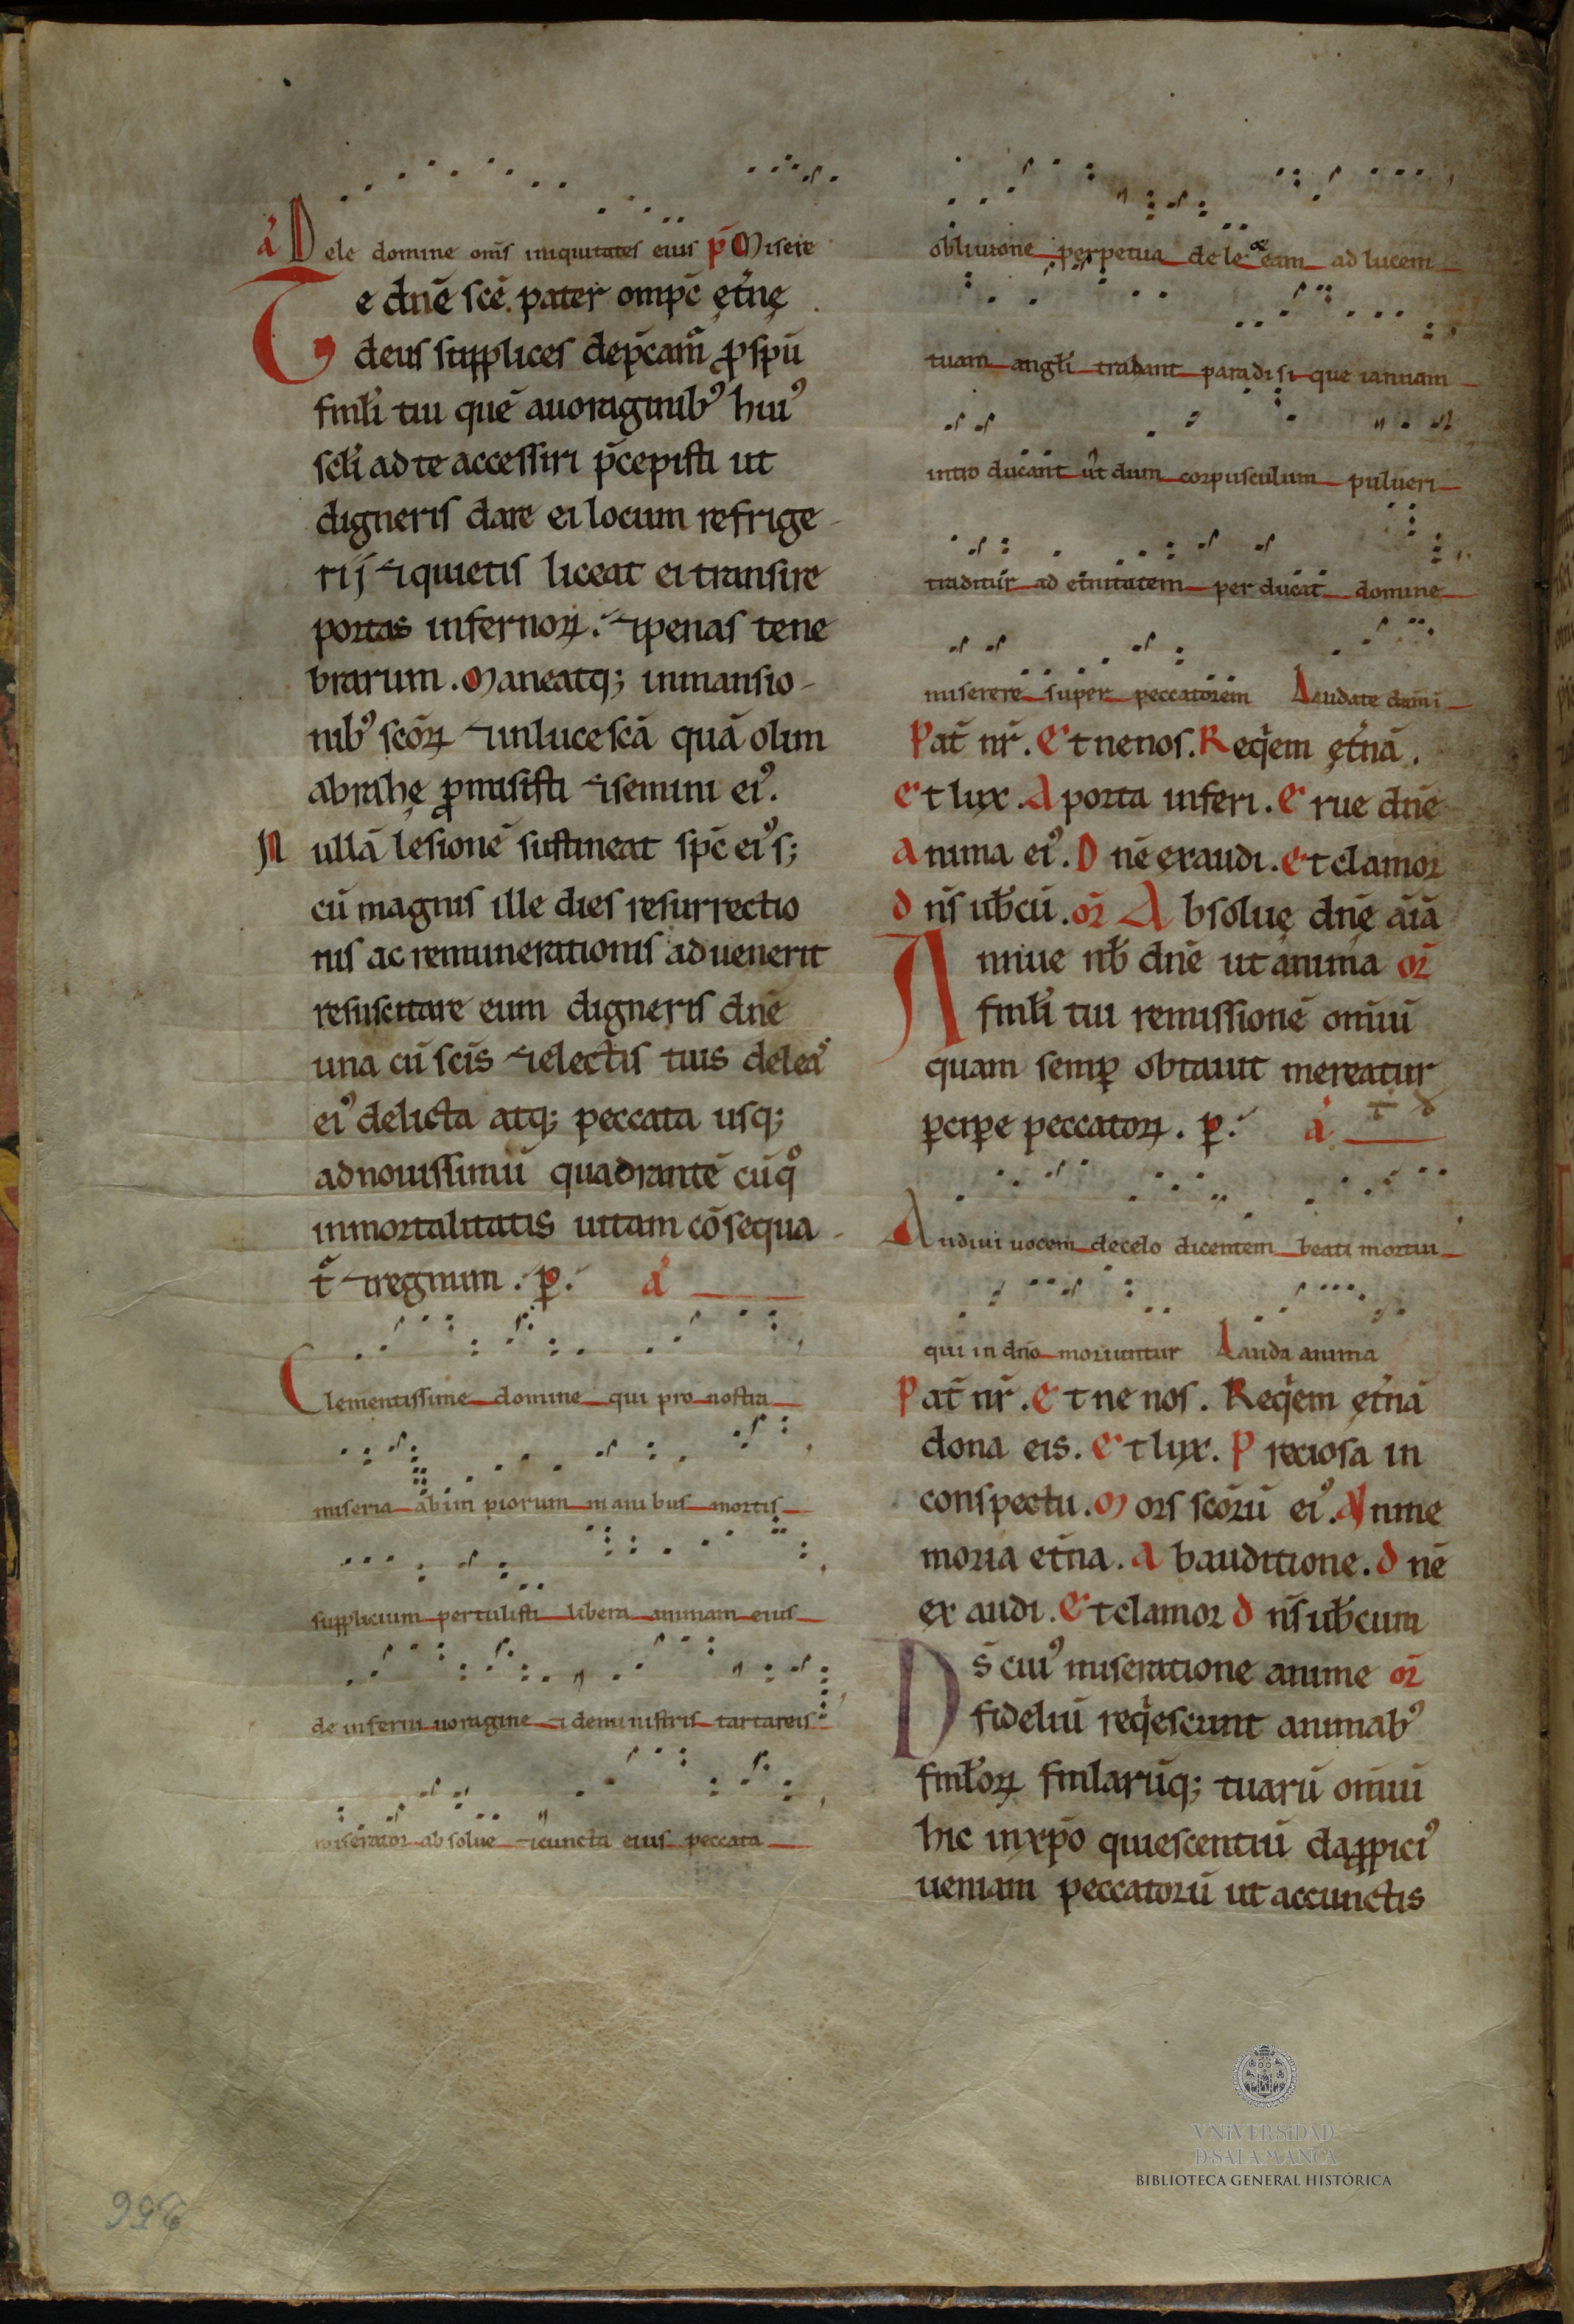 a Dele domine om̄s iniquitates eius p̄ Misere
Te dn̄e sc̄e pater omp̄c ęt̄nę
deus supplices dep̄cam̄ ꝓ spū
fml̄i tui quē auoraginibꝰ huiꝰ
scl̄i ad te accessiri p̄cepisti ut
digneris dare ei locum refrige-
rij ⁊ quietis liceat ei transire
portas infernoꝝ. ⁊ penas tene
brarum. Maneatq; inmansio-
nibꝰ scōꝝ ⁊ inlucescā quā olim
abrahę ꝓmisisti ⁊ semini eiꝰ.
Nullā lesionē sustineat sp̄c eiꝰ s;
cū magnus ille dies resurrectio
nis ac remunerationis aduenerit
resuscitare eum digneris dn̄e
una cū scīs ⁊ electis tuis deleaˢ
eiꝰ delicta atq; peccata usq;
adnouissimū quadrantē cūqͦ
inmortalitatis uitam cōsequa-
t̄ ⁊ regnum. ꝑ. a
Clementissime domine qui pro nostra
miseria ab im piorum manibus mortis
supplicium pertulisti libera animam eius
de inferni uoragine ⁊ deministris tartareis
miserator absolue ⁊ cuncta eius peccata
obliuione perpetua dele eam ad lucem
tuam angl̄i tradant paradisi que ianuam
intro ducant ut dum corpusculum pulueri
traditur ad et̄nitatem per ducat domine
miserere super peccatorem Laudate dnm̄
Pat̄ nr̄. Et nenos. Reqͥem ęt̄nā.
Et lux. A porta inferi. Erue dn̄e
anima eiꝰ. Dn̄e exaudi. Et clamor
dn̄s ub̄cū. or̄ Absoluę dn̄ę aīā
Annue nb̄ dn̄e ut anima or̄
fml̄i tui remissionē om̄iū
quam semꝑ obtauit mereatur
ꝑciꝑe peccatoꝝ. ꝑ. a
Audiui uocem decelo dicentem beati mortui
qui in dn̄o moriuntur Lauda anima
Pat̄ nr̄. Et ne nos. Reqͥem ęt̄nā
dona eis. Et lux. Preciosa in
conspectu. Mors scōrū eiꝰ. In me
moria et̄na. Abauditione. Dn̄ē
ex audi. Et clamor dn̄s ub̄cum
Ds̄ cuiꝰ miseratione anime or̄
fideliū reqͥescunt animabꝰ
fml̄oꝝ fmlarūq; tuarū om̄iū
hic inxp̄o quiescentiū da ꝓpiciꝰ
ueniam peccatorū ut accunctis
256
VNiVERSiDAD
D SALAMANCA
BIBLIOTECA GENERAL HISTÓRICA